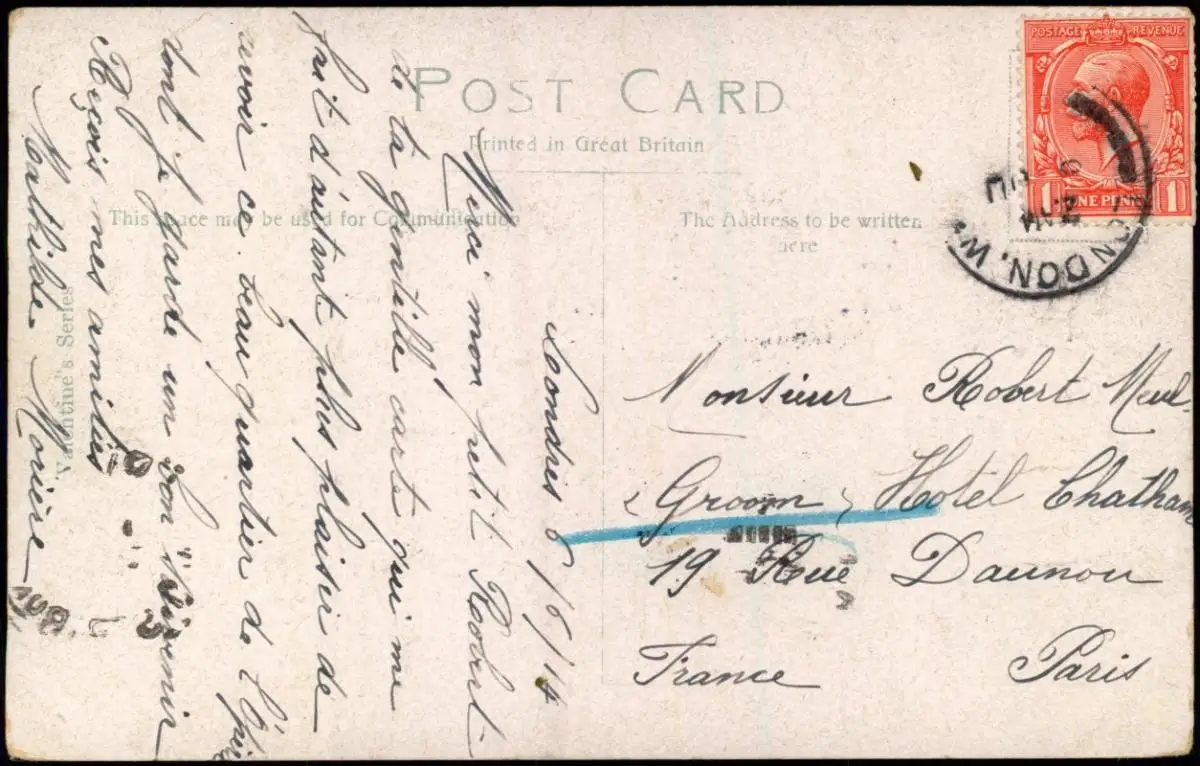 POST CARD
Printed in Great Britain
This space may be used for Communication
The Address to be written
here
Valentine's Series
POSTAGE REVENUE
1 ONE PENNY 1
LONDON. W.
Londres 6/6/14
Merci mon petit Robert
de ta gentille carte qui me
fait d'autant plus plaisir de
avoir ce beau quartier de l'
dont je garde un bon souvenir
Reçois mes amitiés
Mathilde Morière
Monsieur Robert
(Groom) Hotel Chatham
19 Rue Daunou
France Paris